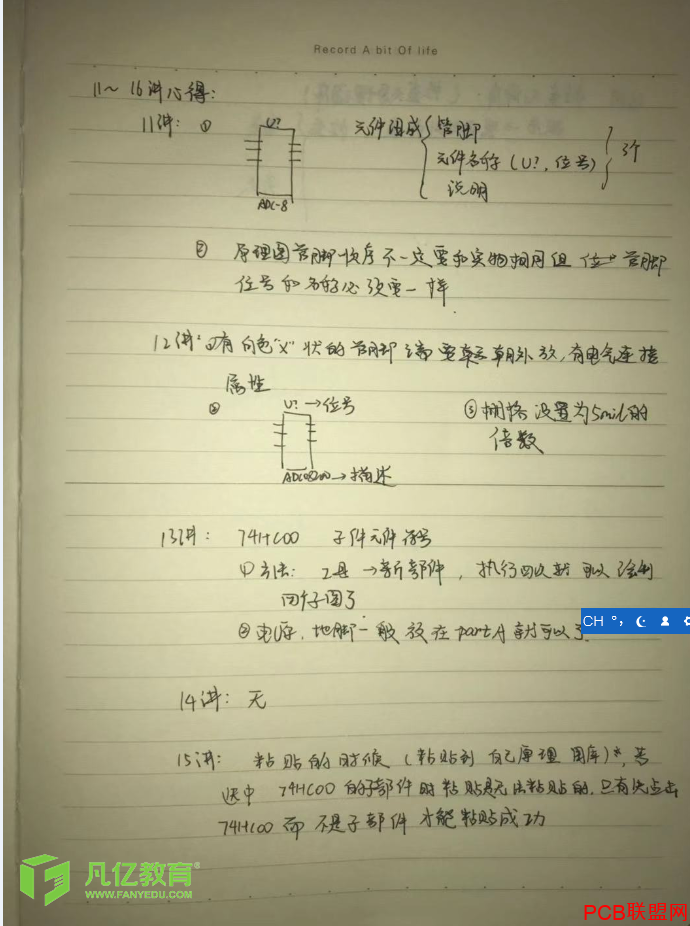 Record A bit Of life
11～16讲心得：
11讲： ① U? 元件组成 管脚
元件名称（U?，位号） 3个
说明
ADC-8
② 原理图管脚顺序不一定要和实物相同但 位 管脚
位号和名称必须要一样.
12讲：①有白色“X”状的管脚 端要 朝外放，有电气连接
属性
② U? →位号 ③ 栅格设置为5mil的
倍数
→描述
13讲： 74HC00 子件元件符号
①方法： 工具→新部件，执行四次就可以绘制
四个子图了
②电源、地脚一般放在partA就可以了
CH
14讲：无
15讲： 粘贴的时候（粘贴到自己原理图库），若
选中 74HC00的子部件时粘贴是无法粘贴的，只有先点击
74HC00而不是子部件才能粘贴成功
凡亿教育®
WWW.FANYEDU.COM
PCB联盟网